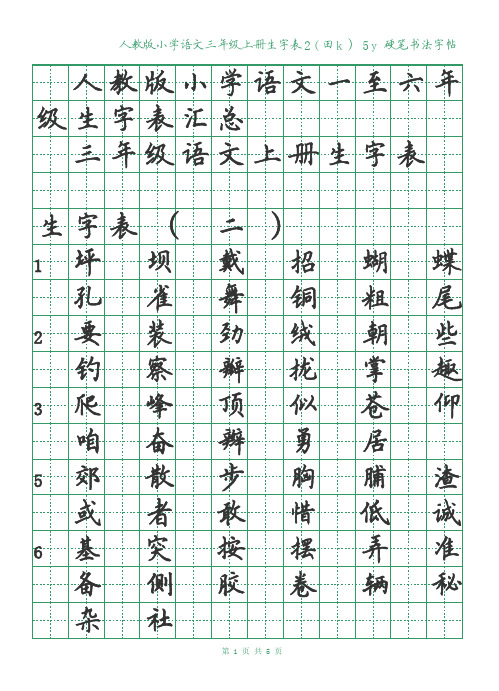 人教版小学语文三年级上册生字表2(田k) 5y 硬笔书法字帖
人教版小学语文一至六年
级生字表汇总
三年级语文上册生字表
生字表(二)
1 坪 坝 戴 招 蝴 蝶
孔 雀 舞 铜 粗 尾
2 要 装 劲 绒 朝 些
钓 察 瓣 拢 掌 趣
3 爬 峰 顶 似 苍 仰
咱 奋 辫 勇 居
5 郊 散 步 胸 脯 渣
或 者 敢 惜 低 诚
6 基 突 按 摆 弄 准
备 侧 胶 卷 辆 秘
杂 社
第 1 页 共 5 页